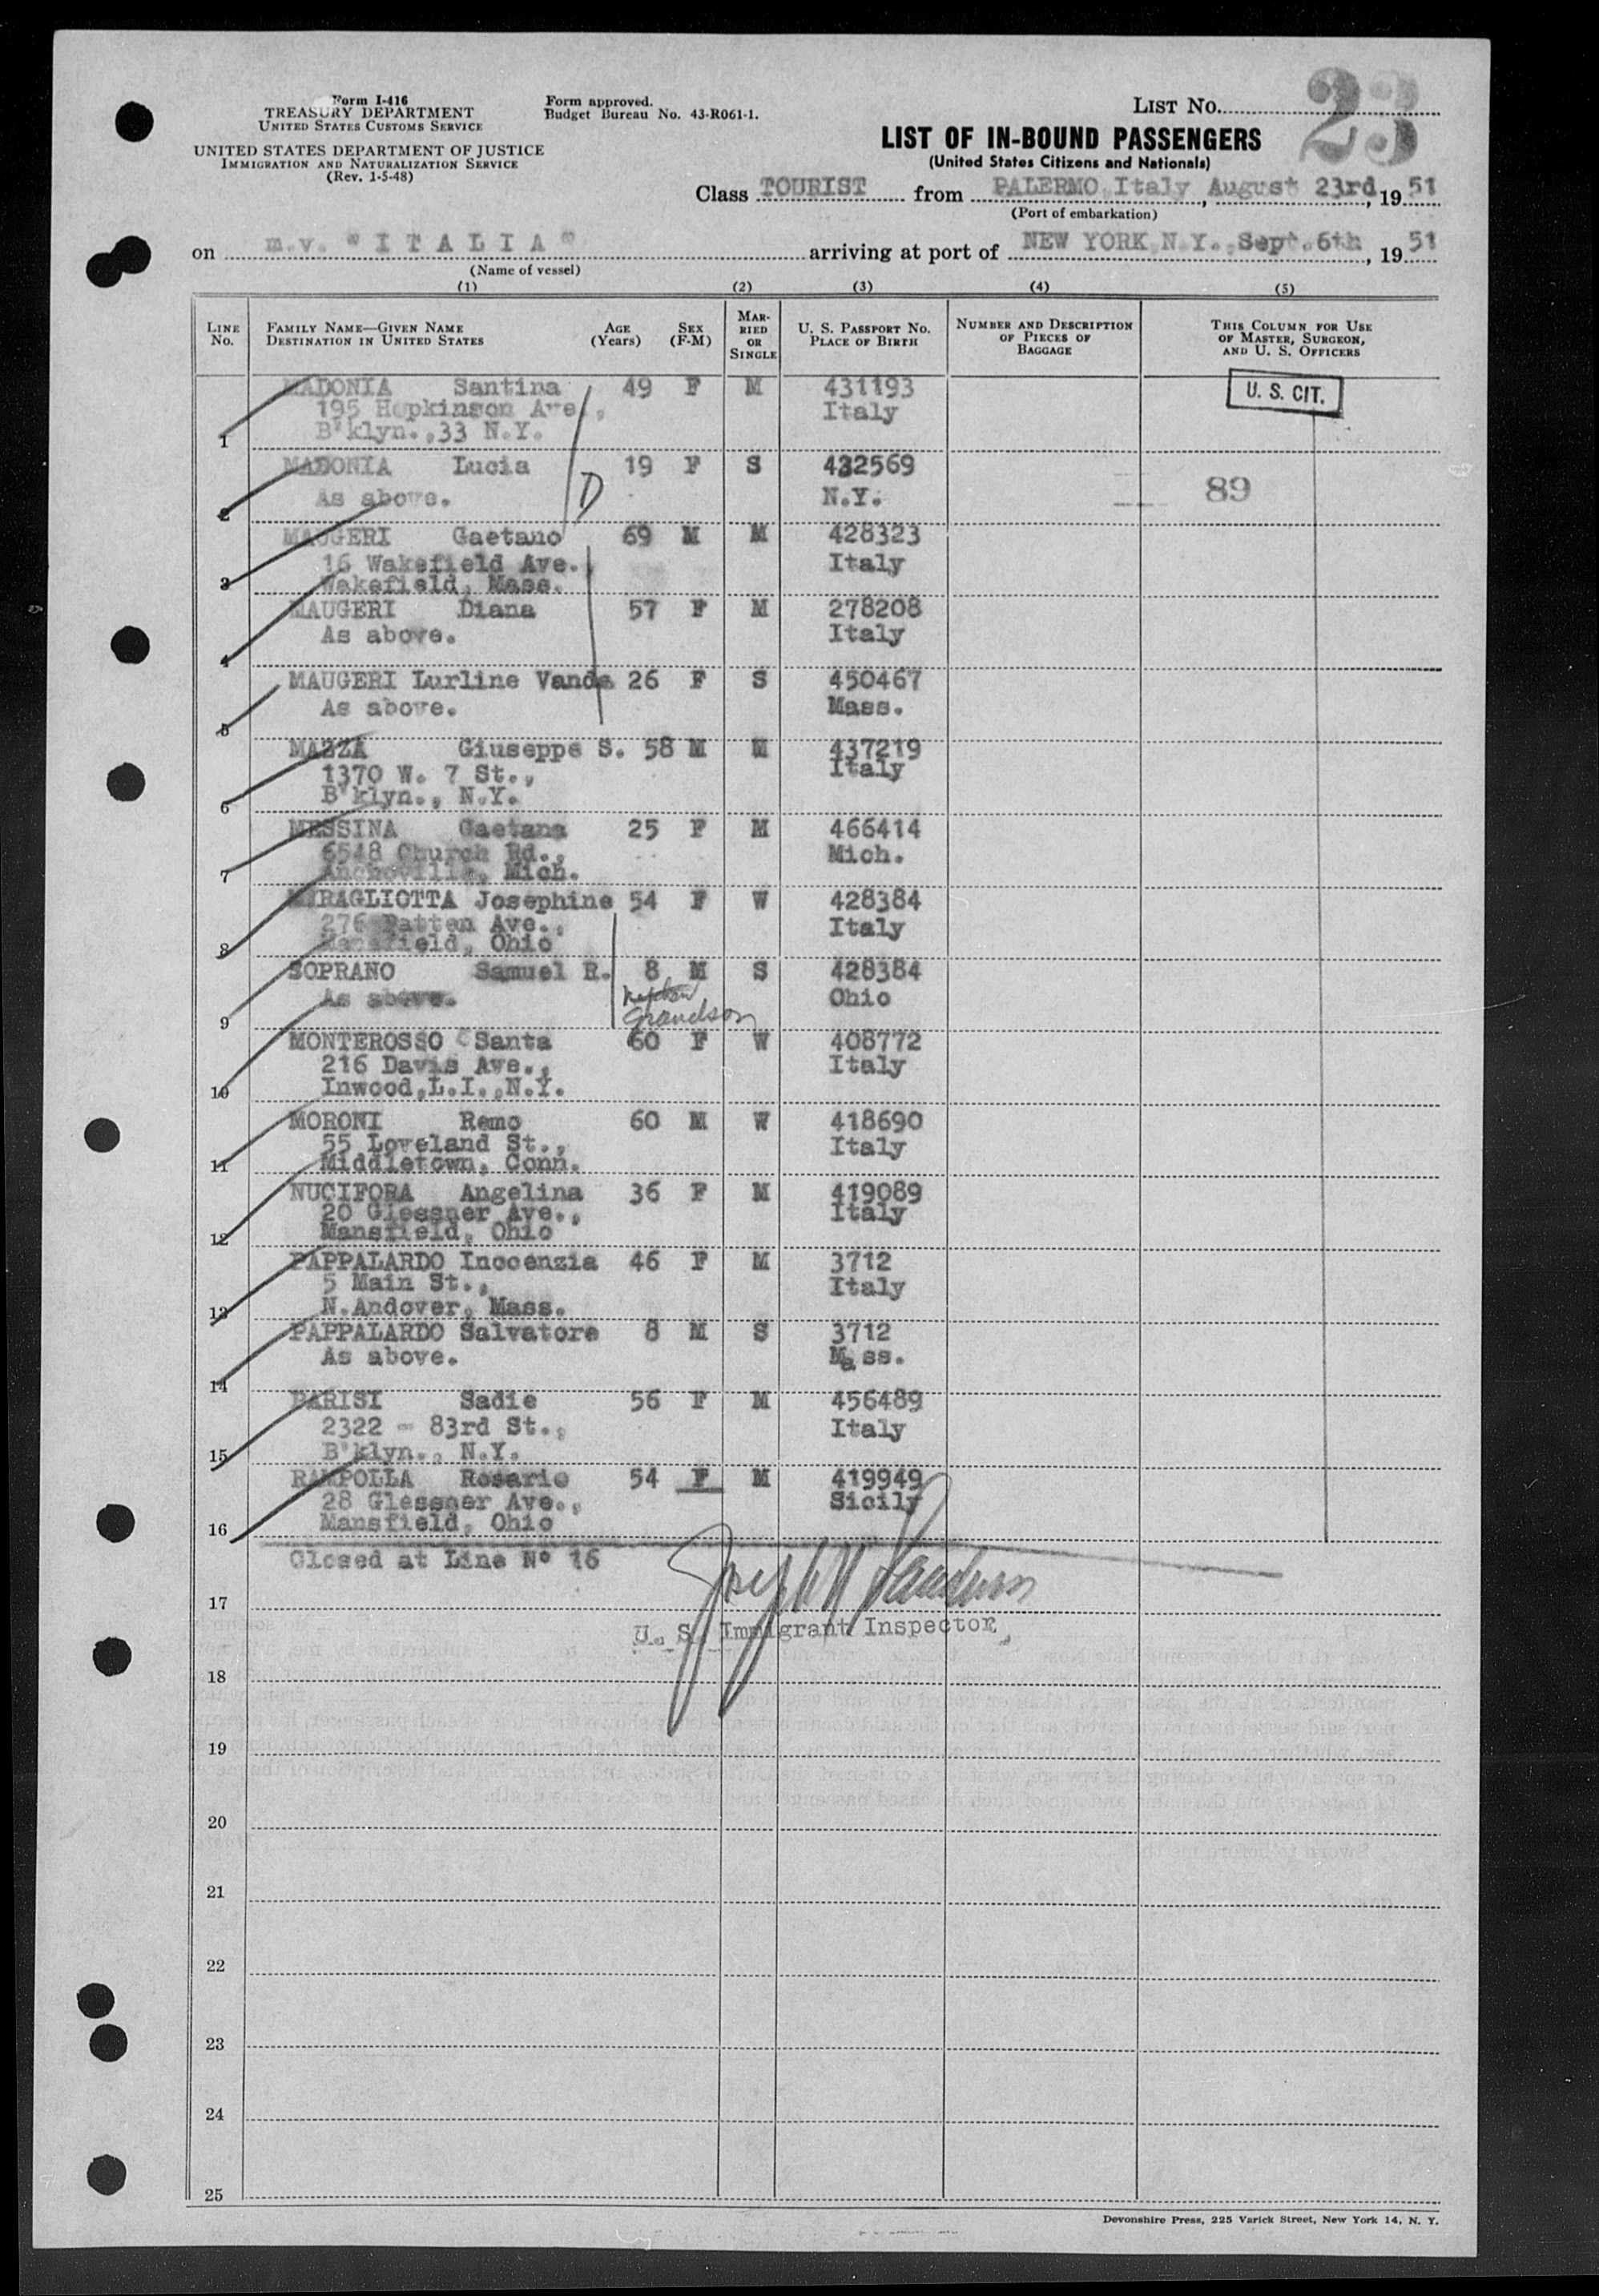 Form I-416
TREASURY DEPARTMENT
UNITED STATES CUSTOMS SERVICE
UNITED STATES DEPARTMENT OF JUSTICE
IMMIGRATION AND NATURALIZATION SERVICE
(Rev. 1-5-48)
Form approved.
Budget Bureau No. 43-R061-1.
LIST NO. 23
LIST OF IN-BOUND PASSENGERS
(United States Citizens and Nationals)
Class TOURIST from PALERMO, Italy, August 23rd, 19 51
(Port of embarkation)
on m.v. "ITALIA" arriving at port of NEW YORK, N.Y., Sept. 6th, 19 51
(Name of vessel)
(1) (2) (3) (4) (5)
LINE NO. FAMILY NAME—GIVEN NAME DESTINATION IN UNITED STATES AGE (Years) SEX (F-M) MARRIED OR SINGLE U. S. PASSPORT NO. PLACE OF BIRTH NUMBER AND DESCRIPTION OF PIECES OF BAGGAGE THIS COLUMN FOR USE OF MASTER, SURGEON, AND U. S. OFFICERS
MADONIA Santina 49 F M 431193 U. S. CIT.
195 Hopkinson Ave., Italy
1 B'klyn.,33 N.Y.
MADONIA Lucia 19 F S 432569 89
2 As above. D N.Y.
MAUGERI Gaetano 69 M M 428323
16 Wakefield Ave. Italy
3 Wakefield, Mass.
MAUGERI Diana 57 F M 278208
As above. Italy
4
MAUGERI Lurline Vanda 26 F S 450467
As above. Mass.
5
MAZZA Giuseppe S. 58 M M 437219
1370 W. 7 St., Italy
6 B'klyn., N.Y.
MESSINA Gaetana 25 F M 466414
6548 Church Rd., Mich.
7 Mich.
MIRAGLIOTTA Josephine 54 F W 428384
276 Patten Ave., Italy
8 Mansfield, Ohio
SOPRANO Samuel R. 8 M S 428384
As above. Ohio
9 nephew
Grandson
MONTEROSSO Santa 60 F W 408772
216 Davis Ave., Italy
10 Inwood,L.I.,N.Y.
MORONI Remo 60 M W 418690
55 Loveland St., Italy
11 Middletown, Conn.
NUCIFORA Angelina 36 F M 419089
20 Glessner Ave., Italy
12 Mansfield, Ohio
PAPPALARDO Inocenzia 46 F M 3712
5 Main St., Italy
13 N.Andover, Mass.
PAPPALARDO Salvatore 8 M S 3712
As above. Mass.
14
PARISI Sadie 56 F M 456489
2322 - 83rd St., Italy
15 B'klyn., N.Y.
RAMPOLLA Rosario 54 F M 419949
28 Glessner Ave., Sicily
16 Mansfield, Ohio
Closed at Line No 16
17
U. S. Immigrant Inspector,
18
19
20
21
22
23
24
25
Devonshire Press, 225 Varick Street, New York 14, N. Y.